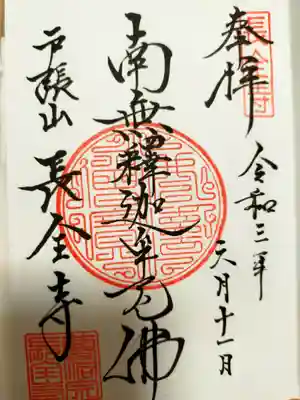 奉拝
令和三年
六月十一日
南無釋迦牟尼佛
戸張山
長全寺